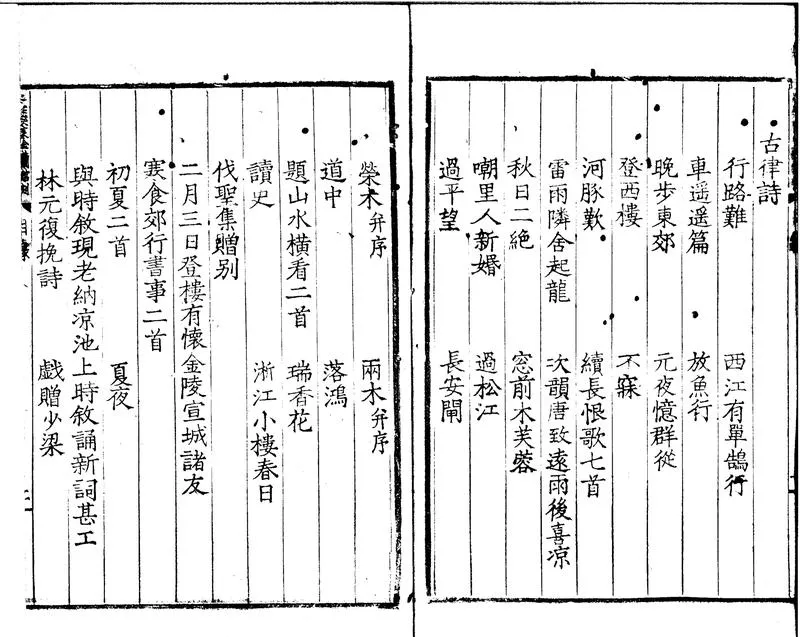 古律詩
行路難　西江有單鵠行
車遥遥篇　放魚行
晚步東郊　元夜憶群從
登西樓　不寐
河豚歎　續長恨歌七首
雷雨隣舍起龍　次韻唐致遠雨後喜凉
秋日二絶　窓前木芙蓉
嘲里人新婚　過松江
過平望　長安閘
榮木并序　兩木并序
道中　落鴻
題山水橫看二首　瑞香花
讀史　淅江小樓春日
伐聖集贈别
二月三日登樓有懷金陵宣城諸友
寒食郊行書事二首
初夏二首　夏夜
與時敘現老納凉池上時敘誦新詞甚工
林元復挽詩　戲贈少梁
目錄